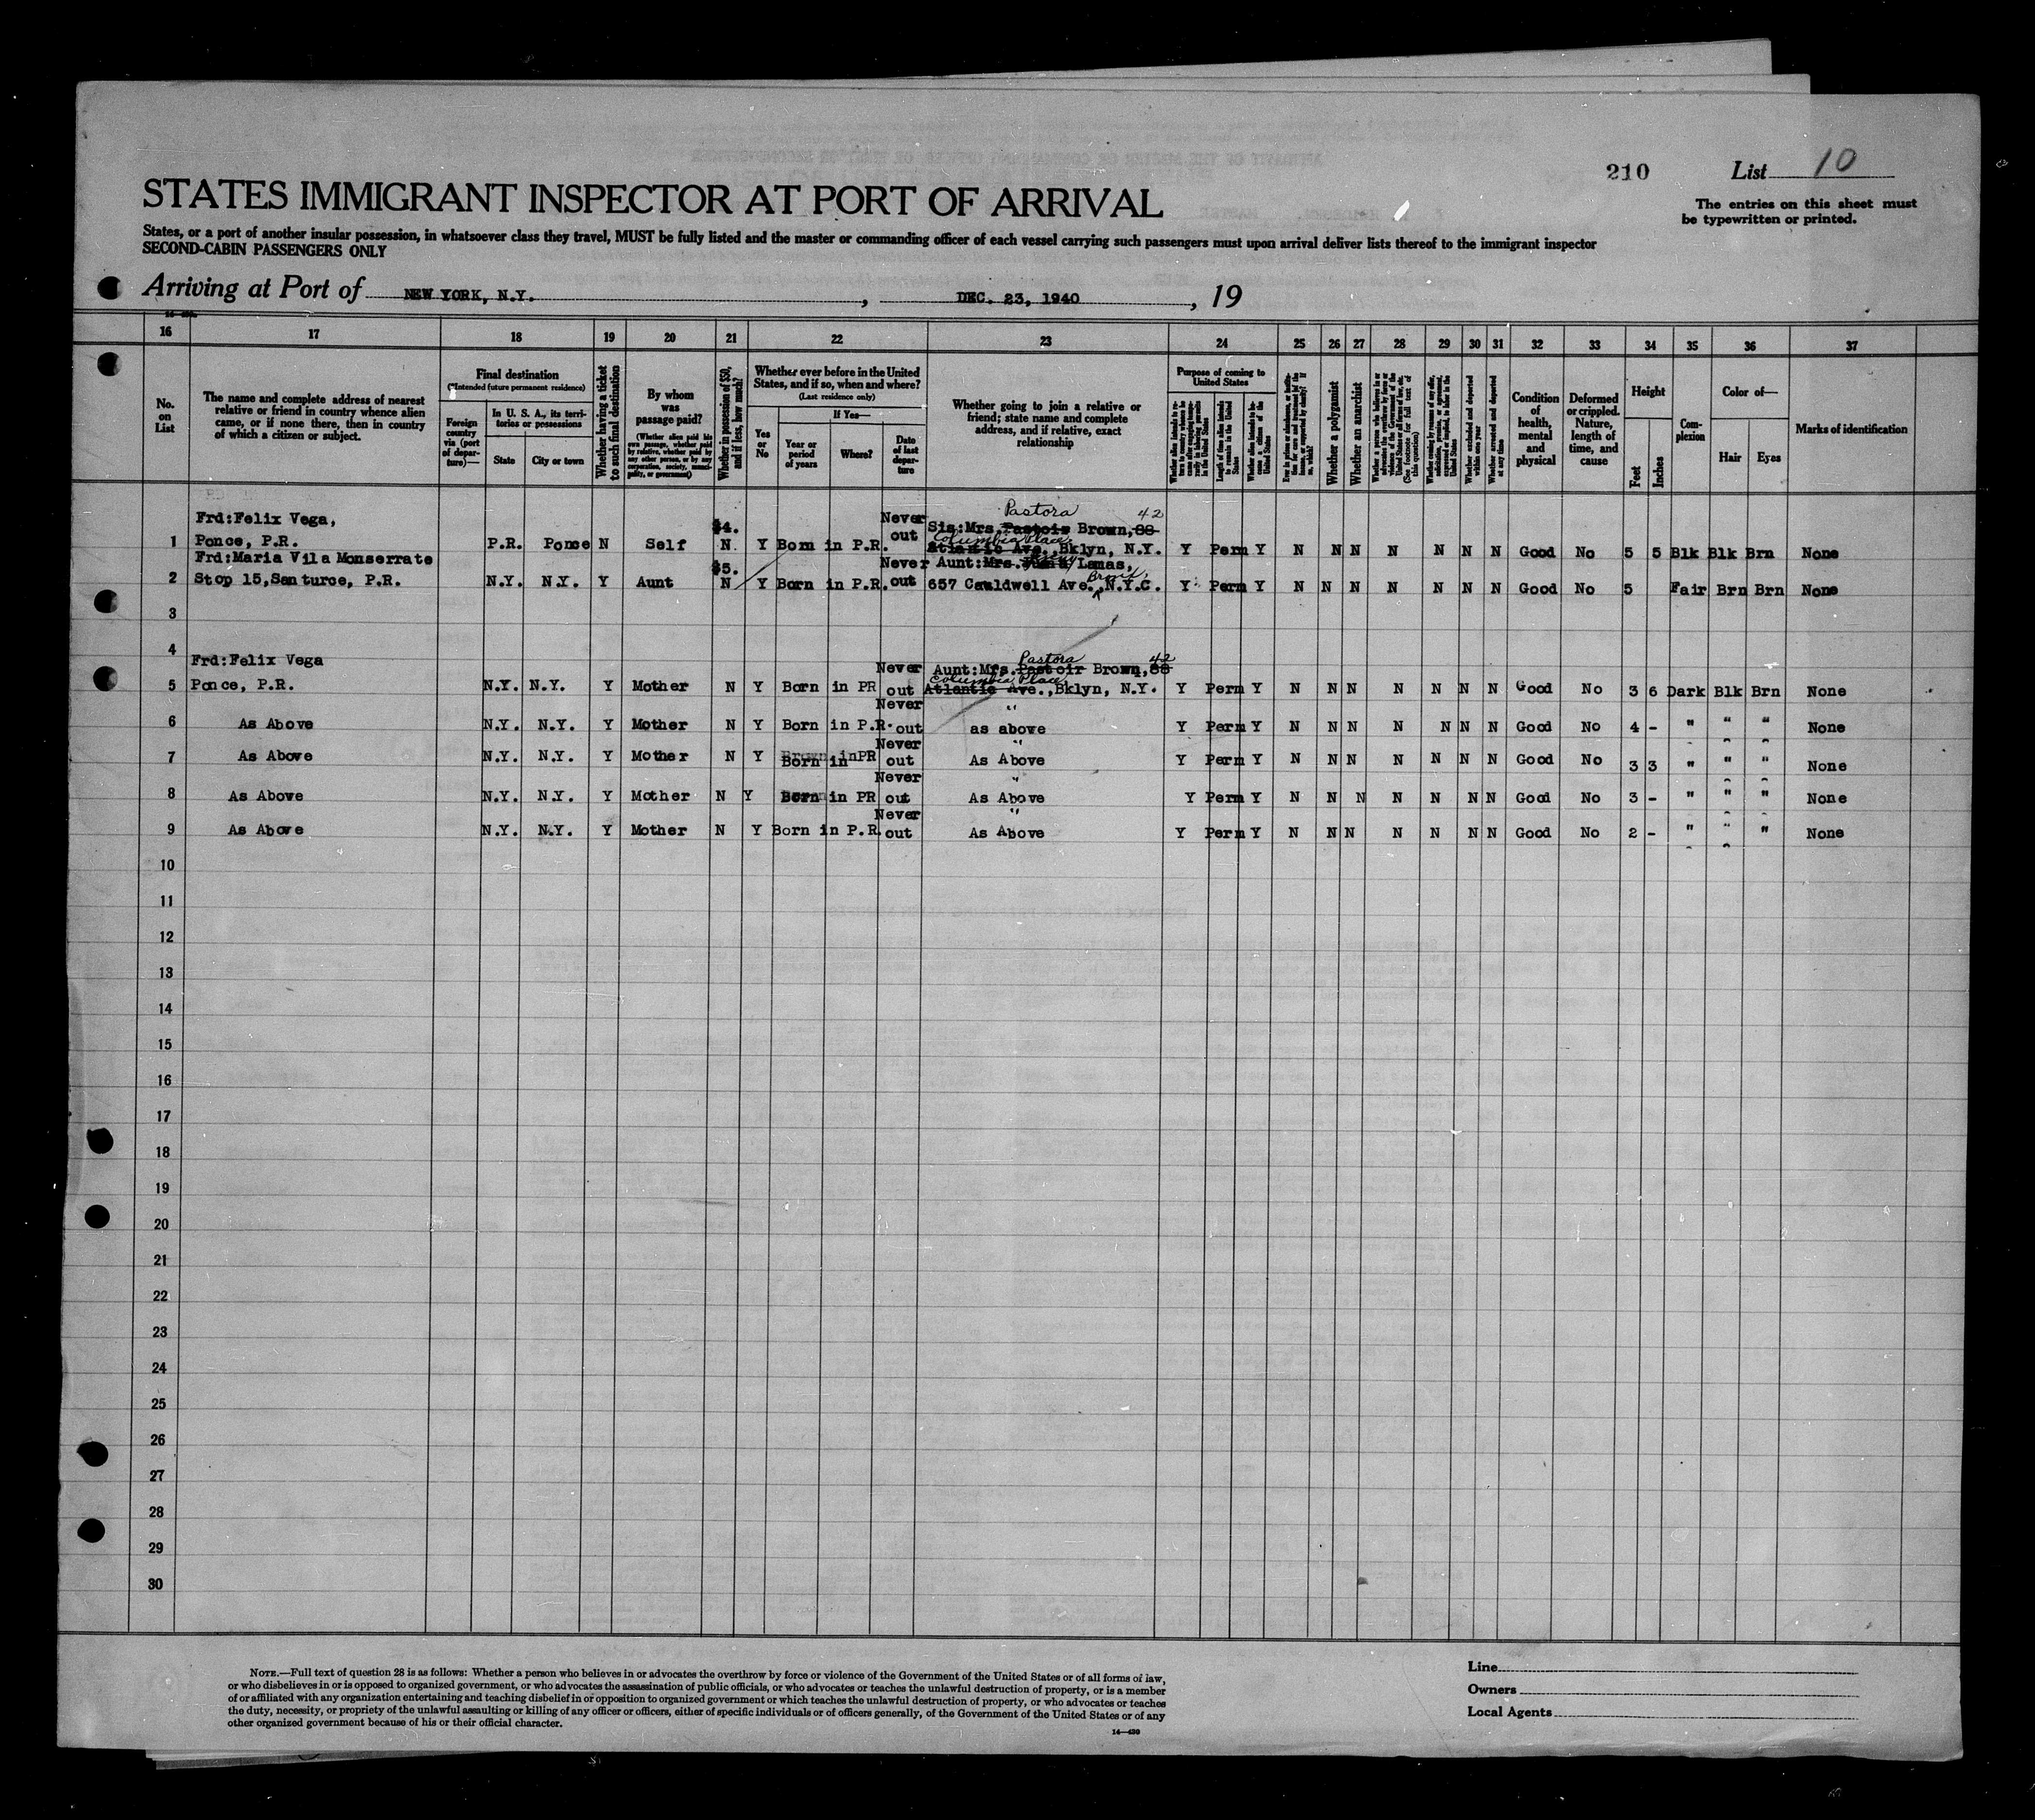 210 List 10
STATES IMMIGRANT INSPECTOR AT PORT OF ARRIVAL
The entries on this sheet must
be typewritten or printed.
States, or a port of another insular possession, in whatsoever class they travel, MUST be fully listed and the master or commanding officer of each vessel carrying such passengers must upon arrival deliver lists thereof to the immigrant inspector
SECOND-CABIN PASSENGERS ONLY
Arriving at Port of NEW YORK, N.Y. , DEC. 23, 1940 , 19
16 17 18 19 20 21 22 23 24 25 26 27 28 29 30 31 32 33 34 35 36 37
No. on List
The name and complete address of nearest
relative or friend in country whence alien
came, or if none there, then in country
of which a citizen or subject.
Final destination
(*Intended future permanent residence)
Foreign country via (port of departure)—
In U. S. A., its territories or possessions
State
City or town
Whether having a ticket to such final destination
By whom was passage paid?
(Whether alien paid his own passage, whether paid by relative, whether paid by any other person, or by any corporation, society, municipality, or government)
Whether in possession of $50, and if less, how much?
Whether ever before in the United
States, and if so, when and where?
(Last residence only)
Yes or No
If Yes—
Year or period of years
Where?
Date of last departure
Whether going to join a relative or
friend; state name and complete
address, and if relative, exact
relationship
Purpose of coming to United States
Length of time alien intends to remain in the United States
Whether alien intends to become a citizen of the United States
Whether a polygamist
Whether an anarchist
Whether excluded and deported within one year
Whether arrested and deported at any time
Condition of health, mental and physical
Deformed or crippled. Nature, length of time, and cause
Height
Feet
Inches
Complexion
Color of—
Hair
Eyes
Marks of identification
Frd:Felix Vega, $4. Never Pastora 42
out Sis:Mrs. Pastoir Brown, 88
Columbia Place
1 Ponce, P.R. P.R. Ponce N Self N Y Born in P.R. Atlantic Ave., Bklyn, N.Y. Y Perm Y N N N N N N N Good No 5 5 Blk Blk Brn None
Frd:Maria Vila Monserrate $5. Never Aunt:Mrs. Lamas,
Bronx
2 Stop 15, Santurce, P.R. N.Y. N.Y. Y Aunt N Y Born in P.R. out 657 Cauldwell Ave., N.Y.C. Y Perm Y N N N N N N N Good No 5 Fair Brn Brn None
3
4
Frd:Felix Vega Never Pastora 42
Aunt:Mrs. Pastoir Brown, 88
Columbia Place
5 Ponce, P.R. N.Y. N.Y. Y Mother N Y Born in PR out Atlantic Ave., Bklyn, N.Y. Y Perm Y N N N N N N N Good No 3 6 Dark Blk Brn None
Never "
6 As Above N.Y. N.Y. Y Mother N Y Born in P.R. out as above Y Perm Y N N N N N N N Good No 4 - " " " None
Never "
7 As Above N.Y. N.Y. Y Mother N Y Born in PR out As Above Y Perm Y N N N N N N N Good No 3 3 " " " None
Never "
8 As Above N.Y. N.Y. Y Mother N Y Born in PR out As Above Y Perm Y N N N N N N N Good No 3 - " " " None
Never "
9 As Above N.Y. N.Y. Y Mother N Y Born in P.R. out As Above Y Perm Y N N N N N N N Good No 2 - " " " None
10
11
12
13
14
15
16
17
18
19
20
21
22
23
24
25
26
27
28
29
30
NOTE.—Full text of question 28 is as follows: Whether a person who believes in or advocates the overthrow by force or violence of the Government of the United States or of all forms of law,
or who disbelieves in or is opposed to organized government, or who advocates the assassination of public officials, or who advocates or teaches the unlawful destruction of property, or is a member
of or affiliated with any organization entertaining and teaching disbelief in or opposition to organized government or which teaches the unlawful destruction of property, or who advocates or teaches
the duty, necessity, or propriety of the unlawful assaulting or killing of any officer or officers, either of specific individuals or of officers generally, of the Government of the United States or of any
other organized government because of his or their official character.
14—430
Line
Owners
Local Agents